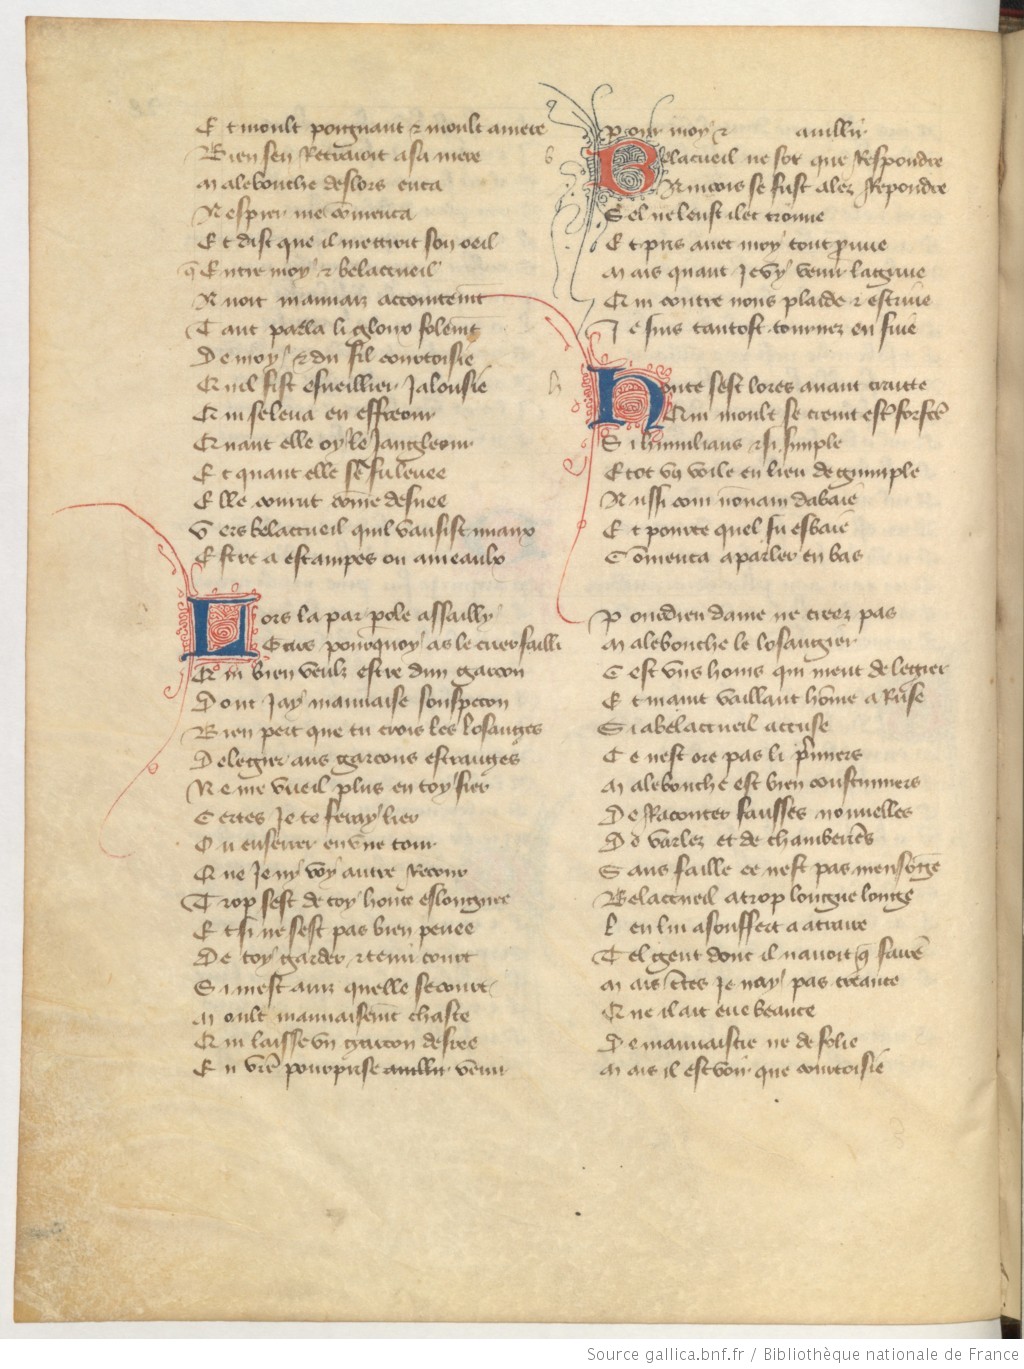 Et moult poignant ⁊ moult amere
Bien sen Retraioit a sa mere
Malebouche deslors enca
A espier me cōmenca
Et dist que il mettroit son oeil
q̄ Entre moy ⁊ belacueil
Auoit mauuaiz accointemēt
Tant parla li glouz folemēt
De moy ⁊ du fil courtoisie
Quil fist esueillier Jalousie
Qui se leua en effreour
Quant elle oy le Jangleour
Et quant elle se fu leuee
Elle courut cōme desuee
Vers belacueil quil vausist miaux
Estre a estampes ou a meaulx
Lors la par pole assailly
Gars pourquoy as le cuer failli
Qui bien veulz estre dun garcon
Dont Jay mauuaise souspecon
Bien pert que tu crois les losanges
De legier aus garcons estranges
Ne me vueil plus en toy fier
Certes Je te feray lier
Ou enserrer en vne tour
Que Je ny voy autre Retour
Trop sest de toy honte eslongnee
Et si ne sest pas bien penee
De toy garder ⁊ tenir court
Si mest auiz quelle secourt
Moult mauuaisemēt chaste
Qui laisse vn garcon desree
En vr̄e pourprise amllir venir
Pour moy ⁊ auillir
Belacueil ne sot que Respondre
Aincois se fust alez Repondre
Sel ne leust ilec trouue
Et pris auec moy tout prouue
Mais quant Je vy venir la griue
Qui contre nous plaide ⁊ estriue
Je suis tantost tournez en fuie
Honte sest lores auant traitte
Qui moult se crient estr̄ forfc̄e
Si humilians ⁊ si simple
Et ot vn voile en lieu de guimple
Aussi com nōnain dabaie
Et pource quel fu esbaie
Cōmenca a parler en bas
Pour dieu dame ne creez pas
Malebouche le losangier
Cest vns homs qui ment de legier
Et maint vaillant hōme a Ruse
Si a belacueil accuse
Ce nest ore pas li p̄miers
Malebouche est bien coustumiers
De Raconter fausses nouuelles
De varlez et de chamberes
Sans faille ce nest pas mensōge
Belacueil a trop longue longe
Len lui a souffert a atraire
Tel gent dont il nauoit q̄ fairē
Mais c̄tes Je nay pas creance
Que il ait eue beance
De mauuaistie ne de folie
Mais il est voir que courtoisie
Source gallica.bnf.fr / Bibliothèque nationale de France